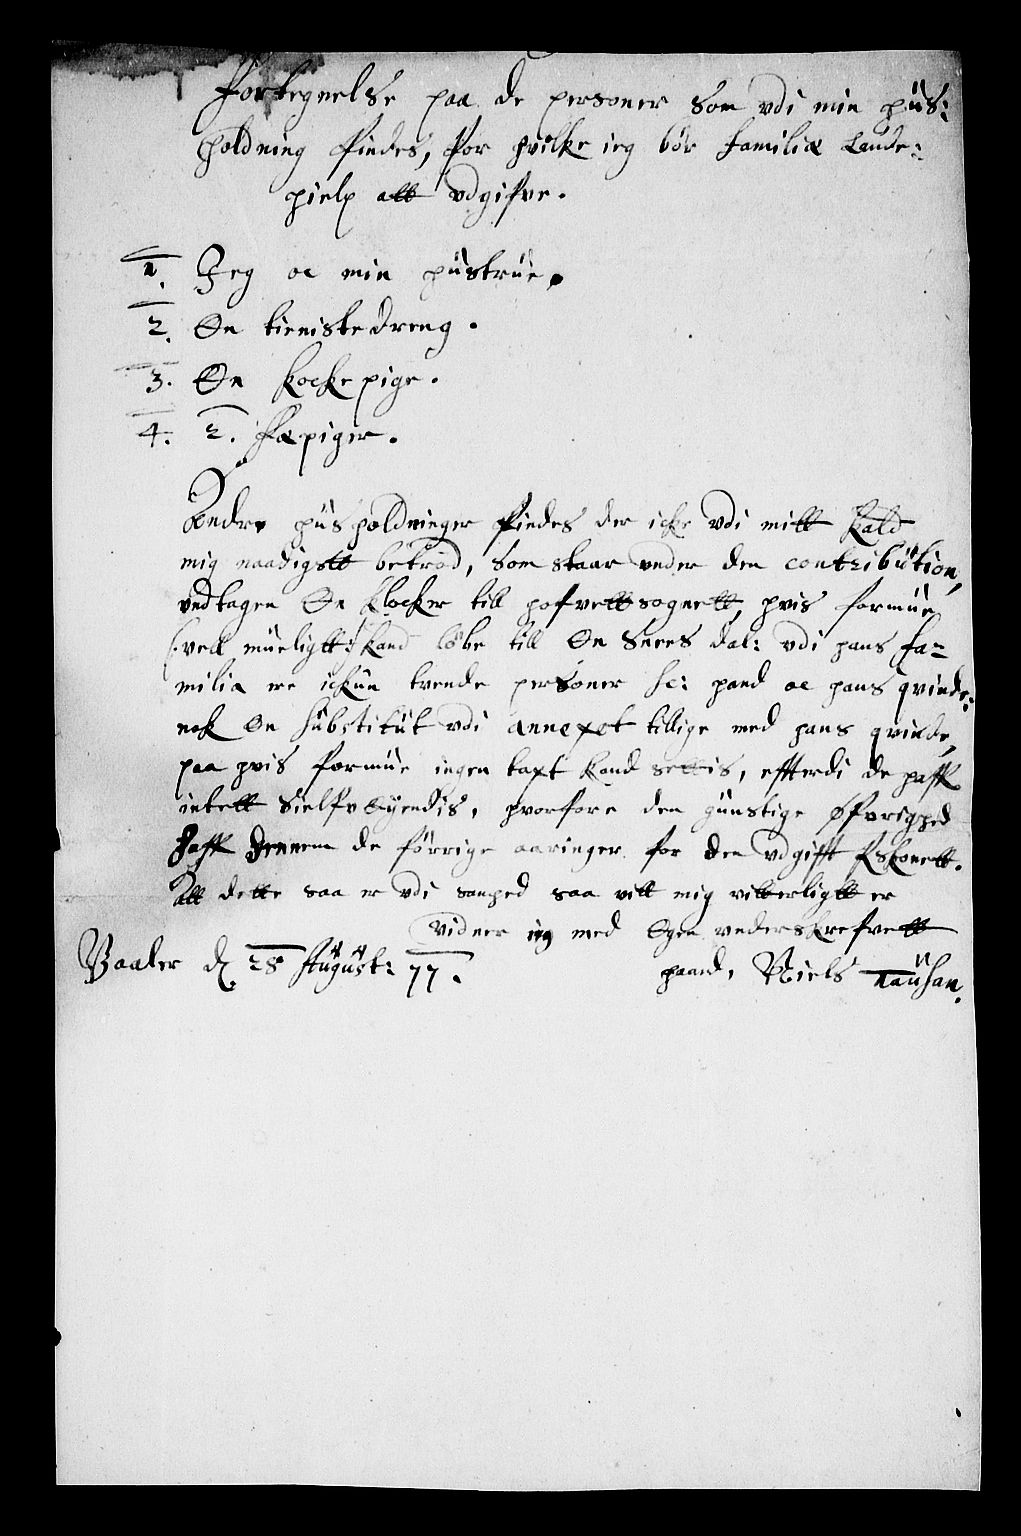 Fortegnelse paa de personer som vdi min huus:
holdning findes, for hvilke ieg bör familiæ Lande:
hielp att vdgifve.
1. Jeg oc min hustrue.
2. En tienistedreng.
3. En kockepige.
4. 2. Fæpiger.
Andre husholdninger findes der icke vdi mitt Kald
mig naadigstt betrod, som staar vnder den contribution,
vndtagen En klocker till hofvettsognett, hvis formue
(: vell mueligtt :) kand löbe till En Snees dal: vdi hans fa-
milia ere ickun tvende personer sc: hand oc hans qvinde:
nok En substitut vdi annexet tillige med hans qvinde,
paa hvis formue ingen taxt kand settis, effterdi de haffr
intett Sielfv Eyendis, hvorfore den gunstige øfvrighed
haffr dennem de förrige aaringer for den vdgifft forskonett.
Att dette saa er vdi sanhed saa vitt mig vitterligtt er
vidner ieg med Egen vnderskrefvett
Vaaler d. 28 August: 77. haand, Niels Tausan.